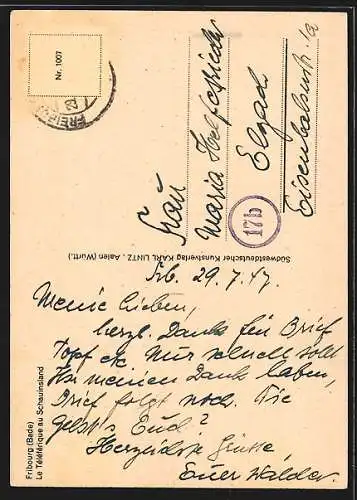 Nr. 1007
FREIB
Frau
Maria
17b
Südwestdeutscher Kunstverlag KARL LINTZ, Aalen (Württ.)
Fribourg (Bade)
Le Téléférique au Schauinsland
Frb. 29.7.47
Meine Lieben,
herzl. Dank für Brief
Topf etc. Nur schnell sollt
Ihr meinen Dank haben,
Brief folgt noch. Wie
geht's Euch?
Herzlichste Grüsse,
Euer